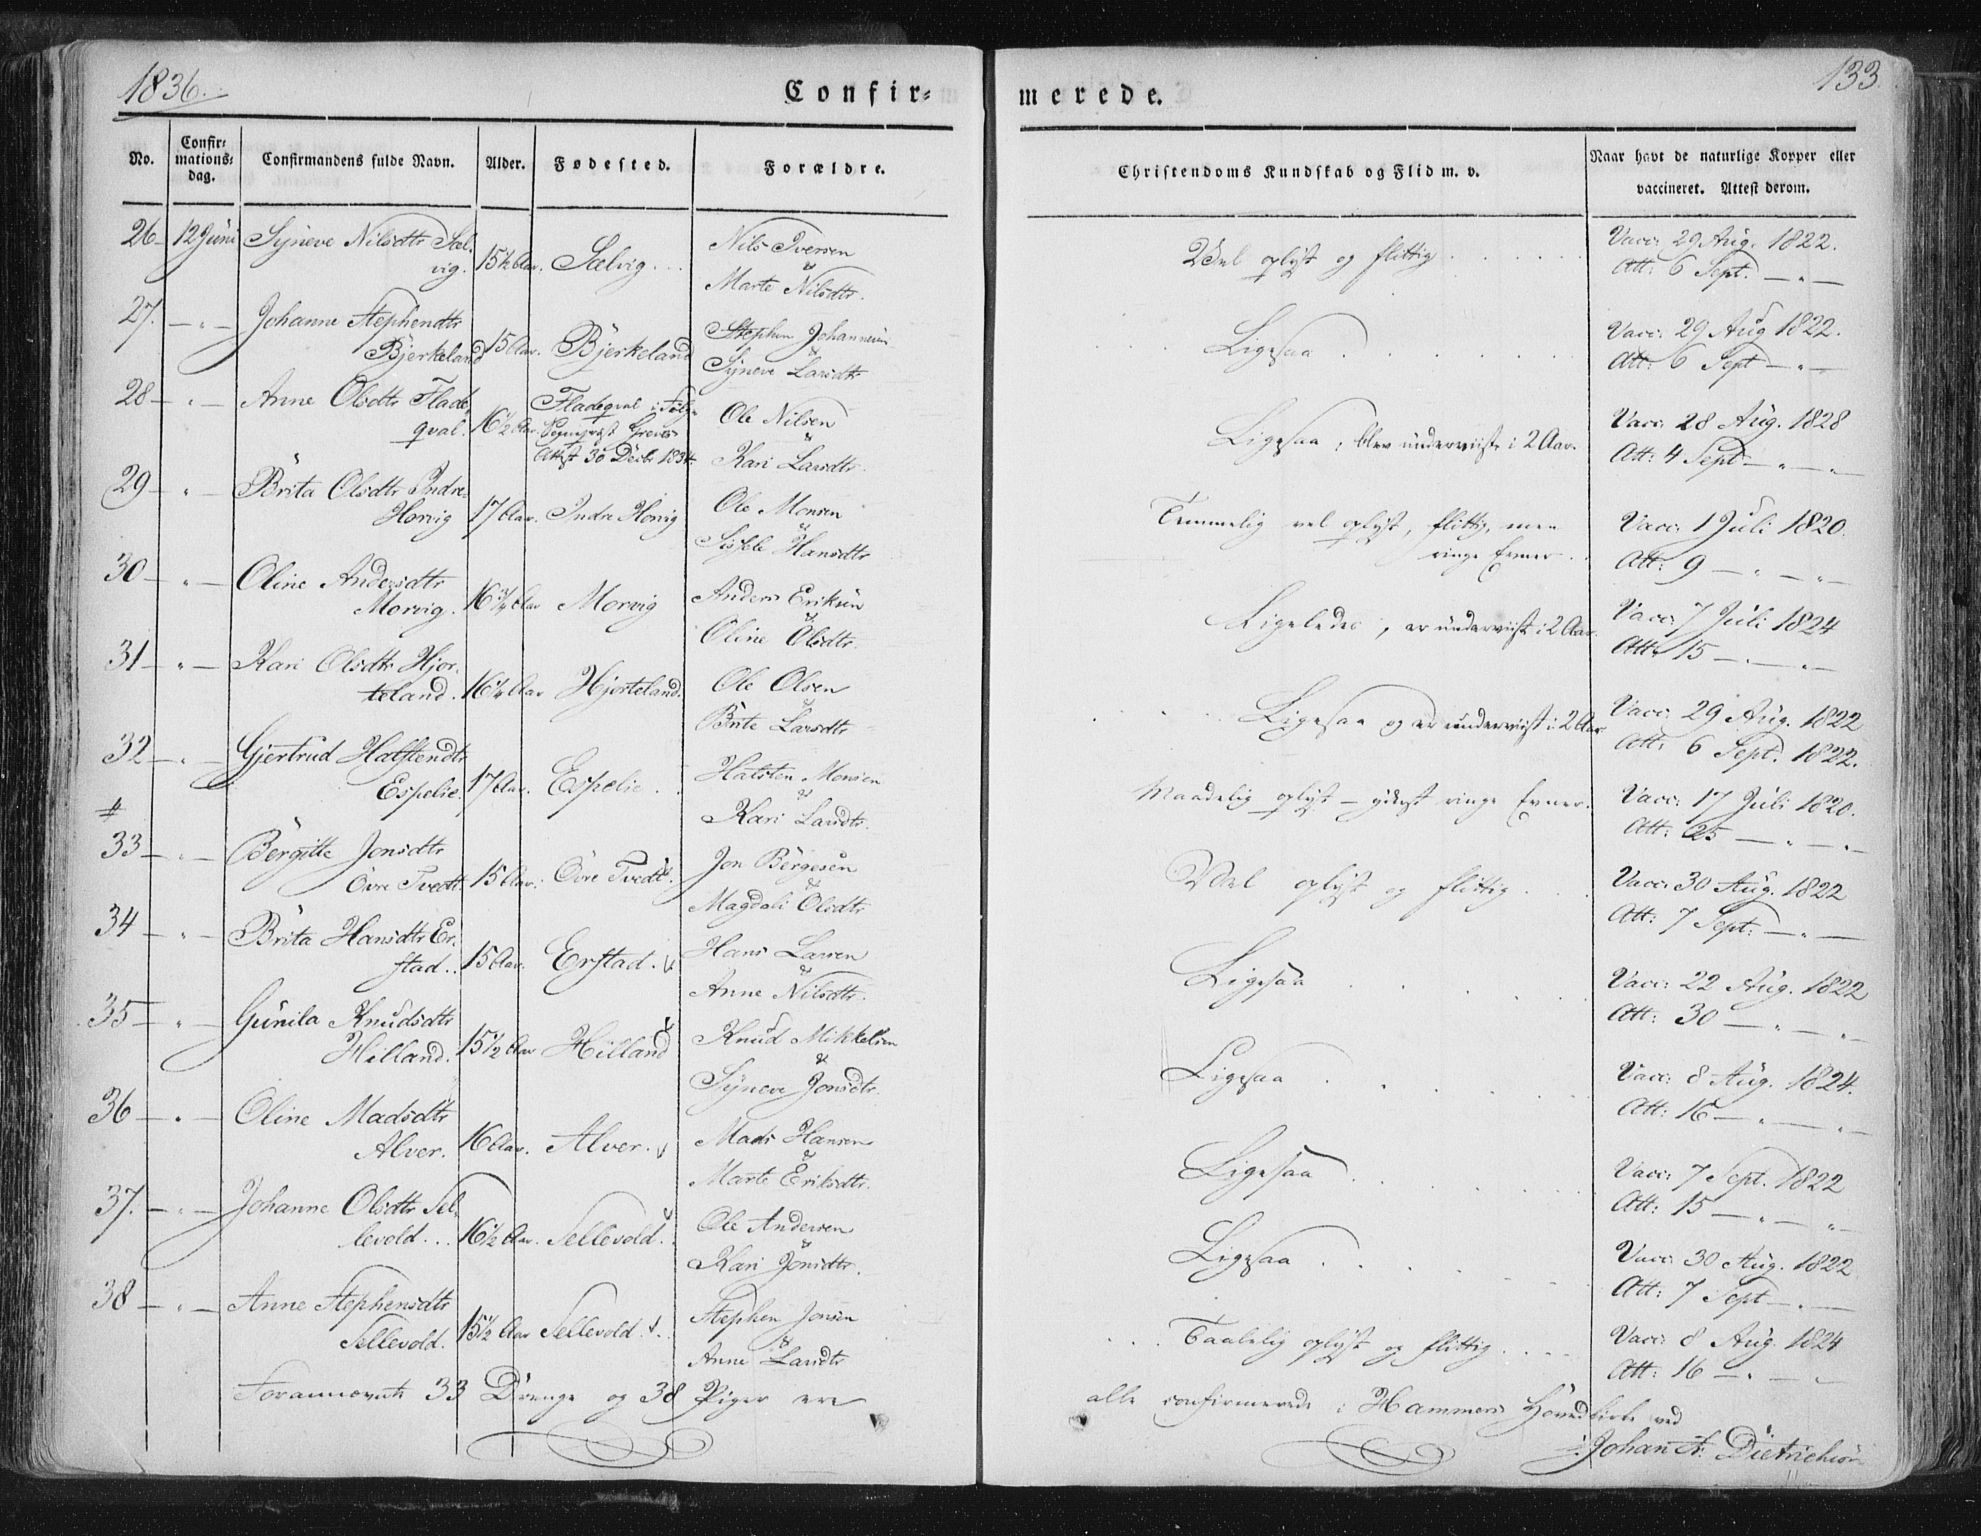 1836.
Confir-
merede.
133
No.
Confir-
mations-
dag.
Confirmandens fulde Navn.
Alder.
Fødested.
Forældre.
Christendoms Kundskab og Flid m. v.
Naar havt de naturlige Kopper eller
vaccineret. Attest derom.
26 — 12 Juni Syneve Nilsdtr Sæl-
vig. 15½ Aar. Sælvig... Nils Iversen
&
Marte Nilsdtr.
Vel oplyst og flittig . . . . . .
Vacc: 29 Aug. 1822.
Att: 6 Sept. — " —
27. — " — Johanne Stephendtr
Bjerkeland 15 Aar. Bjerkeland Stephen Johannesen
Syneve Larsdtr
Ligesaa . . . . . .
Vacc: 29 Aug 1822.
Att: 6 Sept — " —
28 — " — Anne Olsdtr Flade-
qval. 16½ Aar. Fladeqval i Følge
Sognepræst
Attest 30 Decbr 1834.
Ole Nilsen
&
Kari Larsdtr.
Ligesaa; blev underviist i 2 Aar.
Vacc: 28 Aug. 1828
Att: 4 Sept — " — " —
29 — " — Brita Olsdtr Indre-
Horvig 17 Aar. Indre Horvig Ole Monsen
&
Sissele Hansdtr
Temmelig vel oplyst, flittig, men
ringe Evner . .
Vacc: 1 Juli 1820.
Att: 9 — " — " —
30 — " — Oline Andersdtr
Morvig. 16¾ Aar Morvig Anders Eriksen
&
Oline Olsdtr.
Ligeledes, er underviist i 2 Aar.
Vacc: 7 Juli 1824
Att: 15 — " — " —
31 — " — Kari Olsdtr Hjor-
teland. 16¼ Aar Hjorteland. Ole Olsen
&
Brite Larsdtr
Ligesaa og er underviist i 2 Aar
Vacc: 29 Aug. 1822
Att: 6 Sept. 1822.
32 — " — Gjertrud Halstendtr
Espelie. 17 Aar. Espelie . . Halsten Monsen
&
Kari Larsdtr.
Maadelig oplyst — yderst ringe Evner.
Vacc: 17 Juli 1820.
Att: 25 — " — " —
#
33 — " — Bergitte Jonsdtr
Övre Tvedt. 15 Aar. Övre Tvedt. Jon Börgesen
&
Magdali Olsdtr
Vel oplyst og flittig . . .
Vacc: 30 Aug. 1822
Att: 7 Sept: — " —
34 — " — Brita Hansdtr Er-
stad.. 15 Aar. Erstad. Hans Larsen
&
Anne Nilsdtr.
Ligesaa . . . . .
Vacc: 22 Aug. 1822
Att: 30 — " — " —
35 — " — Gunila Knudsdtr
Hilland. 15½ Aar Hilland Knud Mikkelsen
&
Syneve Jonsdtr.
Ligesaa . . . . .
Vacc: 8 Aug. 1824.
Att: 16 — " — " —
36 — " — Oline Madsdtr
Alver. 16 Aar. Alver. Mads Hansen
&
Marte Eriksdtr.
Ligesaa . . . . .
Vacc: 7 Sept. 1822
Att: 15 — " — " —
37. — " — Johanne Olsdtr Sel-
levold... 16½ Aar. Sellevold. Ole Andersen
Kari Jonsdtr.
Ligesaa . . . . .
Vacc: 30 Aug. 1822
Att: 7 Sept — " —
38 — " — Anne Stephensdtr
Sellevold. 15½ Aar Sellevold. Stephen Jonsen
&
Anne Larsdtr
Taalelig oplyst og flittig . . . .
Vacc: 8 Aug. 1824
Att: 16 — " — " —
Forannævnte 33 Drenge og 38 Piger ere
alle confirmerede i Hammers Hovedkirke ved
Johan F. Dietrichson